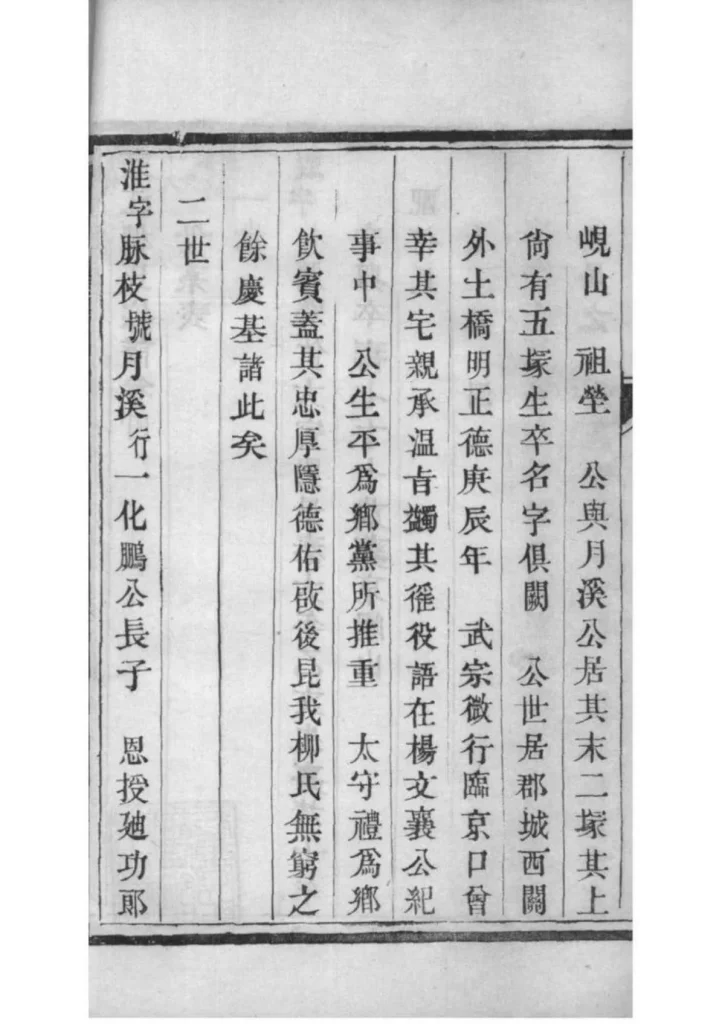 峴山　祖塋　公與月溪公居其末二塚其上
尙有五塚生卒名字俱闕　公世居郡城西關
外土橋明正德庚辰年　武宗微行臨京口曾
幸其宅親承温旨蠲其徭役語在楊文襄公紀
事中　公生平爲鄉黨所推重　太守禮爲鄉
飲賓蓋其忠厚隱德佑啟後昆我柳氏無窮之
餘慶基諸此矣
二世
淮字脉枝號月溪行一化鵬公長子　恩授廸功郎